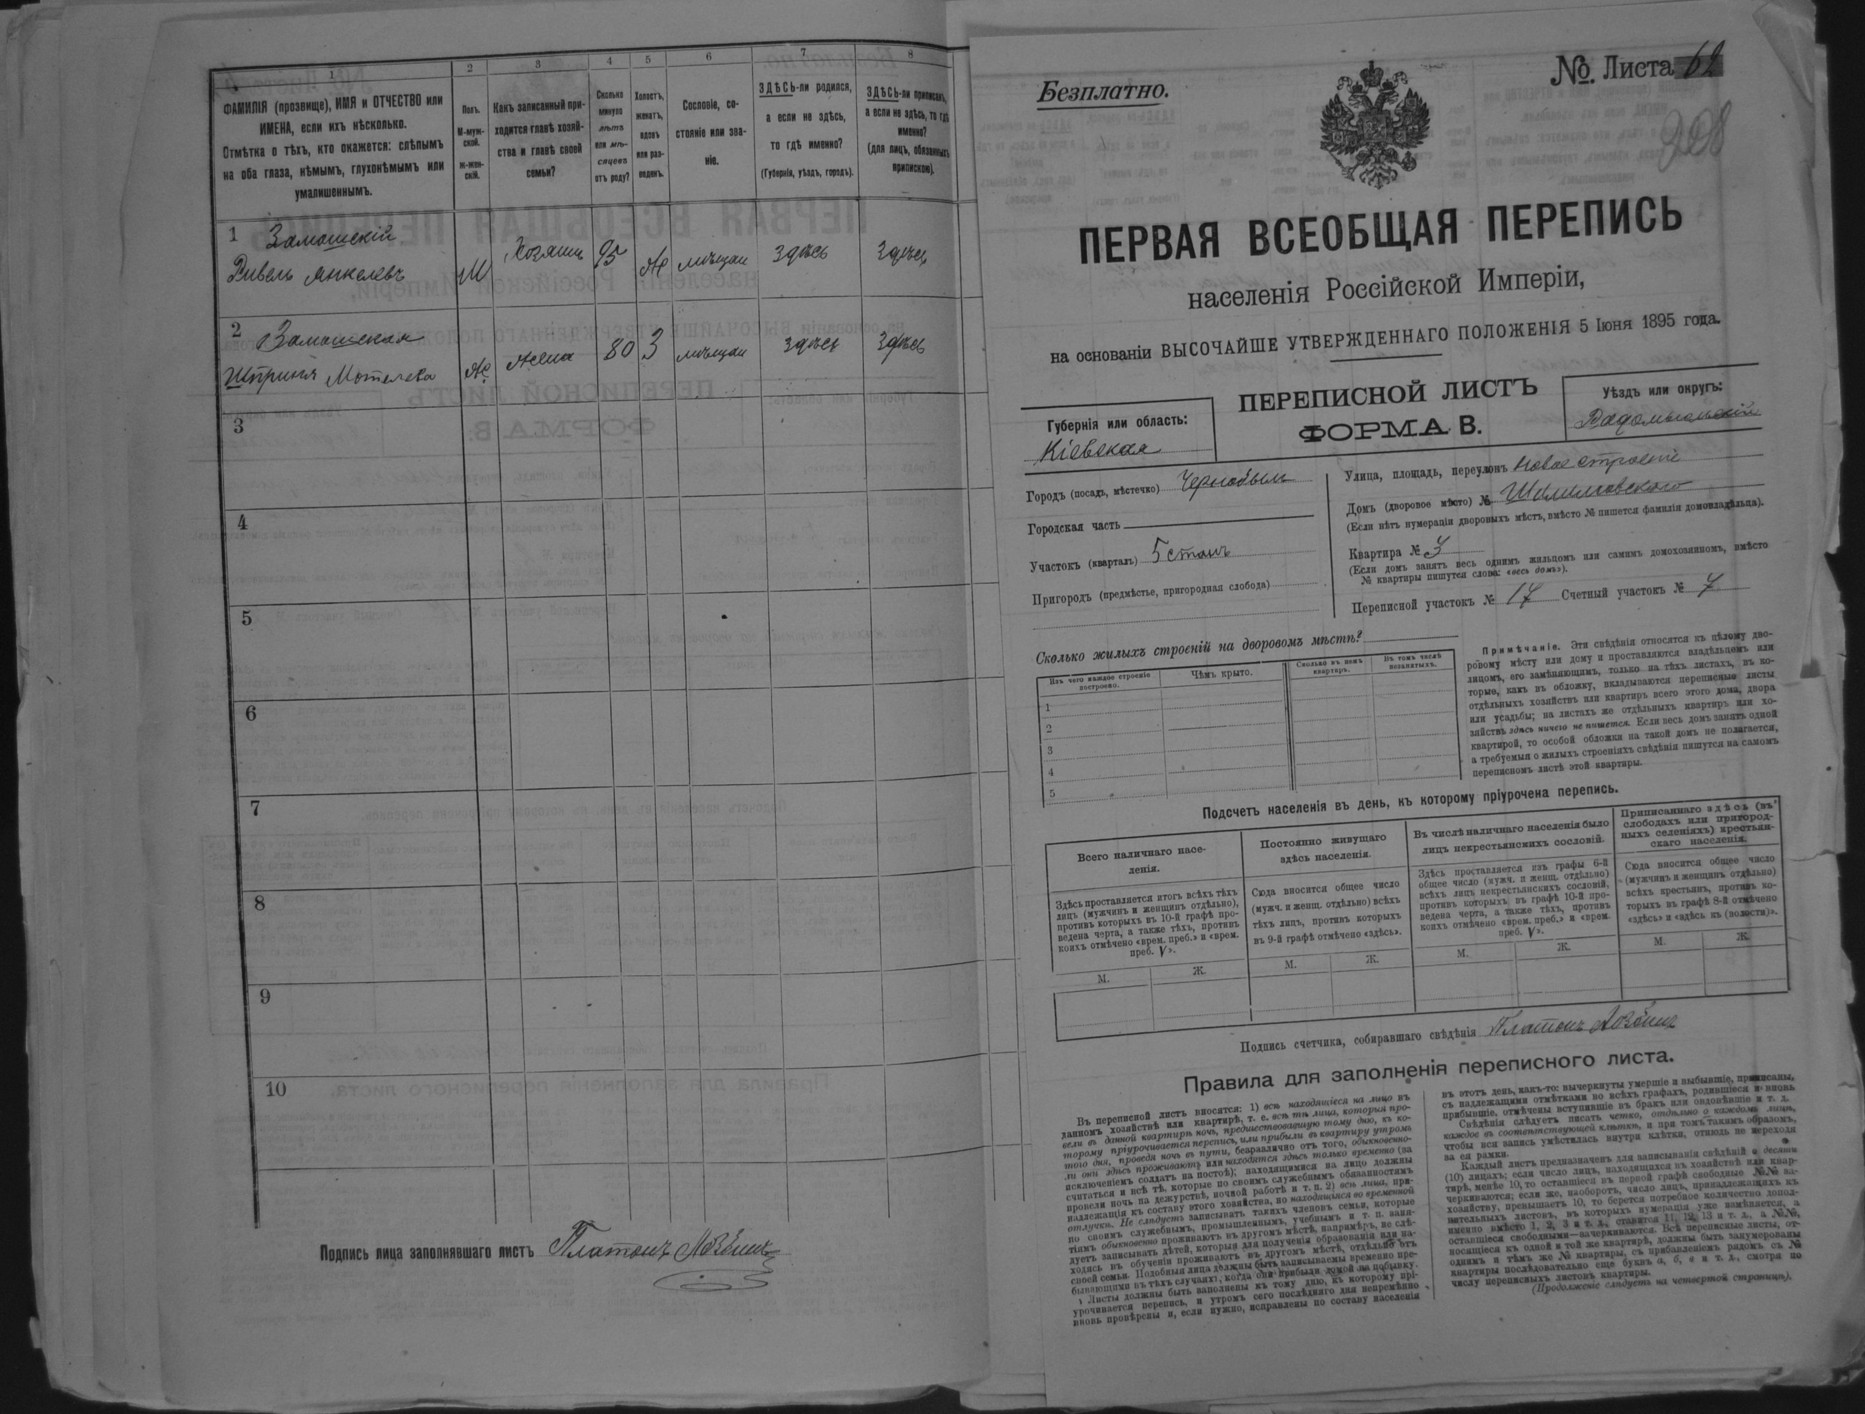 1
2
3
4
5
6
7
8
ФАМИЛІЯ (прозвище), ИМЯ и ОТЧЕСТВО или
ИМЕНА, если ихъ нѣсколько.
Отмѣтка о тѣхъ, кто окажется: слѣпымъ
на оба глаза, нѣмымъ, глухонѣмымъ или
умалишеннымъ.
Полъ.
М-муж-
ской.
Ж-жен-
скій.
Какъ записанный при-
ходится главѣ хозяй-
ства и главѣ своей
семьи?
Сколько
минуло
лѣтъ
или мѣ-
сяцевъ
отъ роду?
Холостъ,
женатъ,
вдовъ
или раз-
веденъ.
Сословіе, со-
стояніе или зва-
ніе.
ЗДѢСЬ-ли родился,
а если не здѣсь,
то гдѣ именно?
(Губернія, уѣздъ, городъ).
ЗДѢСЬ-ли приписанъ,
а если не здѣсь, то гдѣ
именно?
(для лицъ, обязанныхъ
припискою).
1 Замошскій
Янкелевъ
М
Хозяинъ
95
Ж
мѣщан
здѣсь
здѣсь
2 Замошская
Мотелева
Ж
жена
80
З
мѣщан
здѣсь
здѣсь
3
4
5
6
7
8
9
10
Подпись лица заполнявшаго листъ Платонъ
Безплатно.
№ Листа 62
308
ПЕРВАЯ ВСЕОБЩАЯ ПЕРЕПИСЬ
населенія Россійской Имперіи,
на основаніи ВЫСОЧАЙШЕ УТВЕРЖДЕННАГО ПОЛОЖЕНІЯ 5 Іюня 1895 года.
ПЕРЕПИСНОЙ ЛИСТЪ
ФОРМА В.
Губернія или область:
Кіевская
Уѣздъ или округъ:
Радомысльскій
Городъ (посадъ, мѣстечко) Чернобыль
Городская часть
Участокъ (кварталъ) 5 станъ
Пригородъ (предмѣстье, пригородная слобода)
Улица, площадь, переулокъ Новое строеніе
Домъ (дворовое мѣсто) №
(Если нѣтъ нумераціи дворовыхъ мѣстъ, вмѣсто № пишется фамилія домовладѣльца).
Квартира № 3
(Если домъ занятъ весь однимъ жильцомъ или самимъ домохозяиномъ, вмѣсто
№ квартиры пишутся слова: «весь домъ»).
Переписной участокъ № 17 Счетный участокъ № 7
Сколько жилыхъ строеній на дворовомъ мѣстѣ?
Изъ чего каждое строеніе
построено.
Чѣмъ крыто.
Сколько въ немъ
квартиръ.
Въ томъ числѣ
незанятыхъ.
1
2
3
4
5
Примѣчаніе. Эти свѣдѣнія относятся къ цѣлому дво-
ровому мѣсту или дому и проставляются владѣльцемъ или
лицомъ, его замѣняющимъ, только на тѣхъ листахъ, въ ко-
торые, какъ въ обложку, вкладываются переписные листы
отдѣльныхъ хозяйствъ или квартиръ всего этого дома, двора
или усадьбы; на листахъ же отдѣльныхъ квартиръ или хо-
зяйствъ здѣсь ничего не пишется. Если весь домъ занятъ одной
квартирой, то особой обложки на такой домъ не полагается,
а требуемыя о жилыхъ строеніяхъ свѣдѣнія пишутся на самомъ
переписномъ листѣ этой квартиры.
Подсчетъ населенія въ день, къ которому пріурочена перепись.
Всего наличнаго насе-
ленія.
Здѣсь проставляется итогъ всѣхъ тѣхъ
лицъ (мужчинъ и женщинъ отдѣльно),
противъ которыхъ въ 10-й графѣ про-
ведена черта, а также тѣхъ, противъ
коихъ отмѣчено «врем. преб.» и «врем.
преб. V».
М. Ж.
Постоянно живущаго
здѣсь населенія.
Сюда вносится общее число
(мужч. и женщ. отдѣльно) всѣхъ
тѣхъ лицъ, противъ которыхъ
въ 9-й графѣ отмѣчено «здѣсь».
М. Ж.
Въ числѣ наличнаго населенія было
лицъ некрестьянскихъ сословій.
Здѣсь проставляется изъ графы 6-й
общее число (мужч. и женщ. отдѣльно)
всѣхъ лицъ некрестьянскихъ сословій,
противъ которыхъ въ графѣ 10-й про-
ведена черта, а также тѣхъ, противъ
коихъ отмѣчено «врем. преб.» и «врем.
преб. V».
М. Ж.
Приписаннаго здѣсь (въ
слободахъ или пригород-
ныхъ селеніяхъ) крестьян-
скаго населенія.
Сюда вносится общее число
(мужчинъ и женщинъ отдѣльно)
всѣхъ крестьянъ, противъ ко-
торыхъ въ графѣ 8-й отмѣчено
«здѣсь» и «здѣсь къ (волости)».
М. Ж.
Подпись счетчика, собиравшаго свѣдѣнія Платонъ
Правила для заполненія переписного листа.
Въ переписной листъ вносятся: 1) всѣ находящіеся на лицо въ
данномъ хозяйствѣ или квартирѣ, т. е. всѣ тѣ лица, которыя про-
вели въ данной квартирѣ ночь, предшествовавшую тому дню, къ ко-
торому пріурочивается перепись, или прибыли въ квартиру утромъ
того дня, проведя ночь въ пути, безразлично отъ того, обыкновенно-
ли они здѣсь проживаютъ или находятся здѣсь только временно (за
исключеніемъ солдатъ на постоѣ); находящимися на лицо должны
считаться и всѣ тѣ, которые по своимъ служебнымъ обязанностямъ
провели ночь на дежурствѣ, ночной работѣ и т. п. 2) всѣ лица, при-
надлежащія къ составу этого хозяйства, но находящіяся во временной
отлучкѣ. Не слѣдуетъ записывать такихъ членовъ семьи, которые
по своимъ служебнымъ, промышленнымъ, учебнымъ и т. п. заня-
тіямъ обыкновенно проживаютъ въ другомъ мѣстѣ, напримѣръ, не слѣ-
дуетъ записывать дѣтей, которыя для полученія образованія или на-
ходясь въ обученіи проживаютъ въ другомъ мѣстѣ, отдѣльно отъ
своей семьи. Подобныя лица должны быть записываемы временно пре-
бывающими въ тѣхъ случаяхъ, когда они прибыли домой на побывку.
Листы должны быть заполнены къ тому дню, къ которому прі-
урочивается перепись, и утромъ сего послѣдняго дня непремѣнно
вновь провѣрены и, если нужно, исправлены по составу населенія
въ этотъ день, какъ-то: вычеркнуты умершіе и выбывшіе, приписаны,
съ надлежащими отмѣтками во всѣхъ графахъ, родившіеся и вновь
прибывшіе, отмѣчены вступившіе въ бракъ или овдовѣвшіе и т. д.
Свѣдѣнія слѣдуетъ писать четко, отдѣльно о каждомъ лицѣ,
каждое въ соотвѣтствующей клѣткѣ, и при томъ такимъ образомъ,
чтобы вся запись умѣстилась внутри клѣтки, отнюдь не переходя
за ея рамки.
Каждый листъ предназначенъ для записыванія свѣдѣній о десяти
(10) лицахъ; если число лицъ, находящихся въ хозяйствѣ или квар-
тирѣ, менѣе 10, то оставшіеся въ первой графѣ свободные №№ за-
черкиваются; если же, наоборотъ, число лицъ, принадлежащихъ къ
хозяйству, превышаетъ 10, то берется потребное количество допол-
нительныхъ листовъ, въ которыхъ нумерація уже измѣняется, а
именно вмѣсто 1, 2, 3 и т. д. ставится 11, 12, 13 и т. д., а №№,
оставшіеся свободными—зачеркиваются. Всѣ переписные листы, от-
носящіеся къ одной и той же квартирѣ, должны быть занумерованы
однимъ и тѣмъ же № квартиры, съ прибавленіемъ рядомъ съ №
квартиры послѣдовательно еще буквъ а, б, в и т. д., смотря по
числу переписныхъ листовъ квартиры.
(Продолженіе слѣдуетъ на четвертой страницѣ).